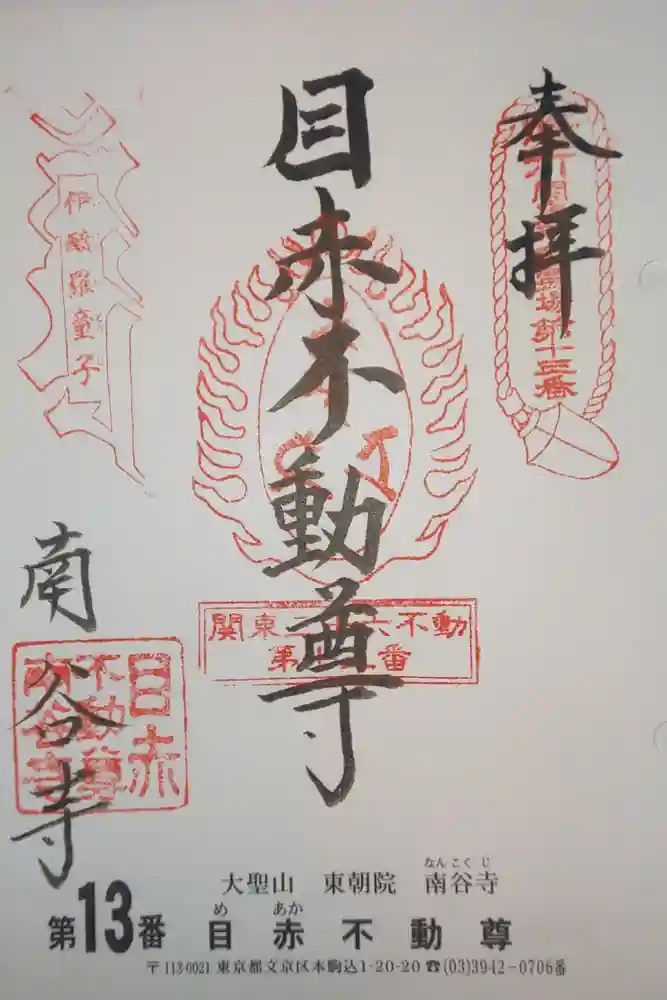 奉拝
目赤不動尊
伊醯羅童子
南谷寺
関東三十六不動
第十三番
目赤
不動尊
南谷寺
なんこくじ
大聖山 東朝院 南谷寺
め あか
第13番 目赤不動尊
〒113-0021 東京都文京区本駒込1-20-20 ☎(03)3942-0706番